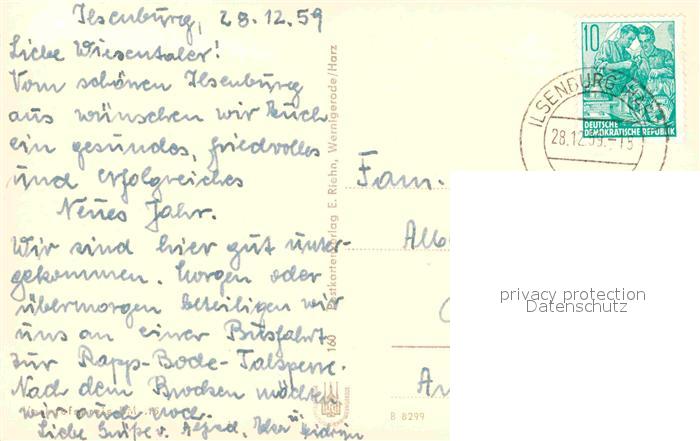 Ilsenburg, 28.12.59
Liebe Wiesentaler!
Vom schönen Ilsenburg
aus wünschen wir Euch
ein gesundes, friedvolles
und erfolgreiches
Neues Jahr.
Wir sind hier gut unter-
gekommen. Morgen oder
übermorgen beteiligen wir
uns an einer Busfahrt
zur Rapp-Bode-Talsperre.
Nach dem Brocken möchten
wir auch noch.
Liebe Grüße v. Alfred, u.
160 Postkartenverlag E. Riehn, Wernigerode/Harz
10
DEUTSCHE
DEMOKRATISCHE REPUBLIK
ILSENBURG
28.12.59.-15
Fam.
B 8299
privacy protection
Datenschutz